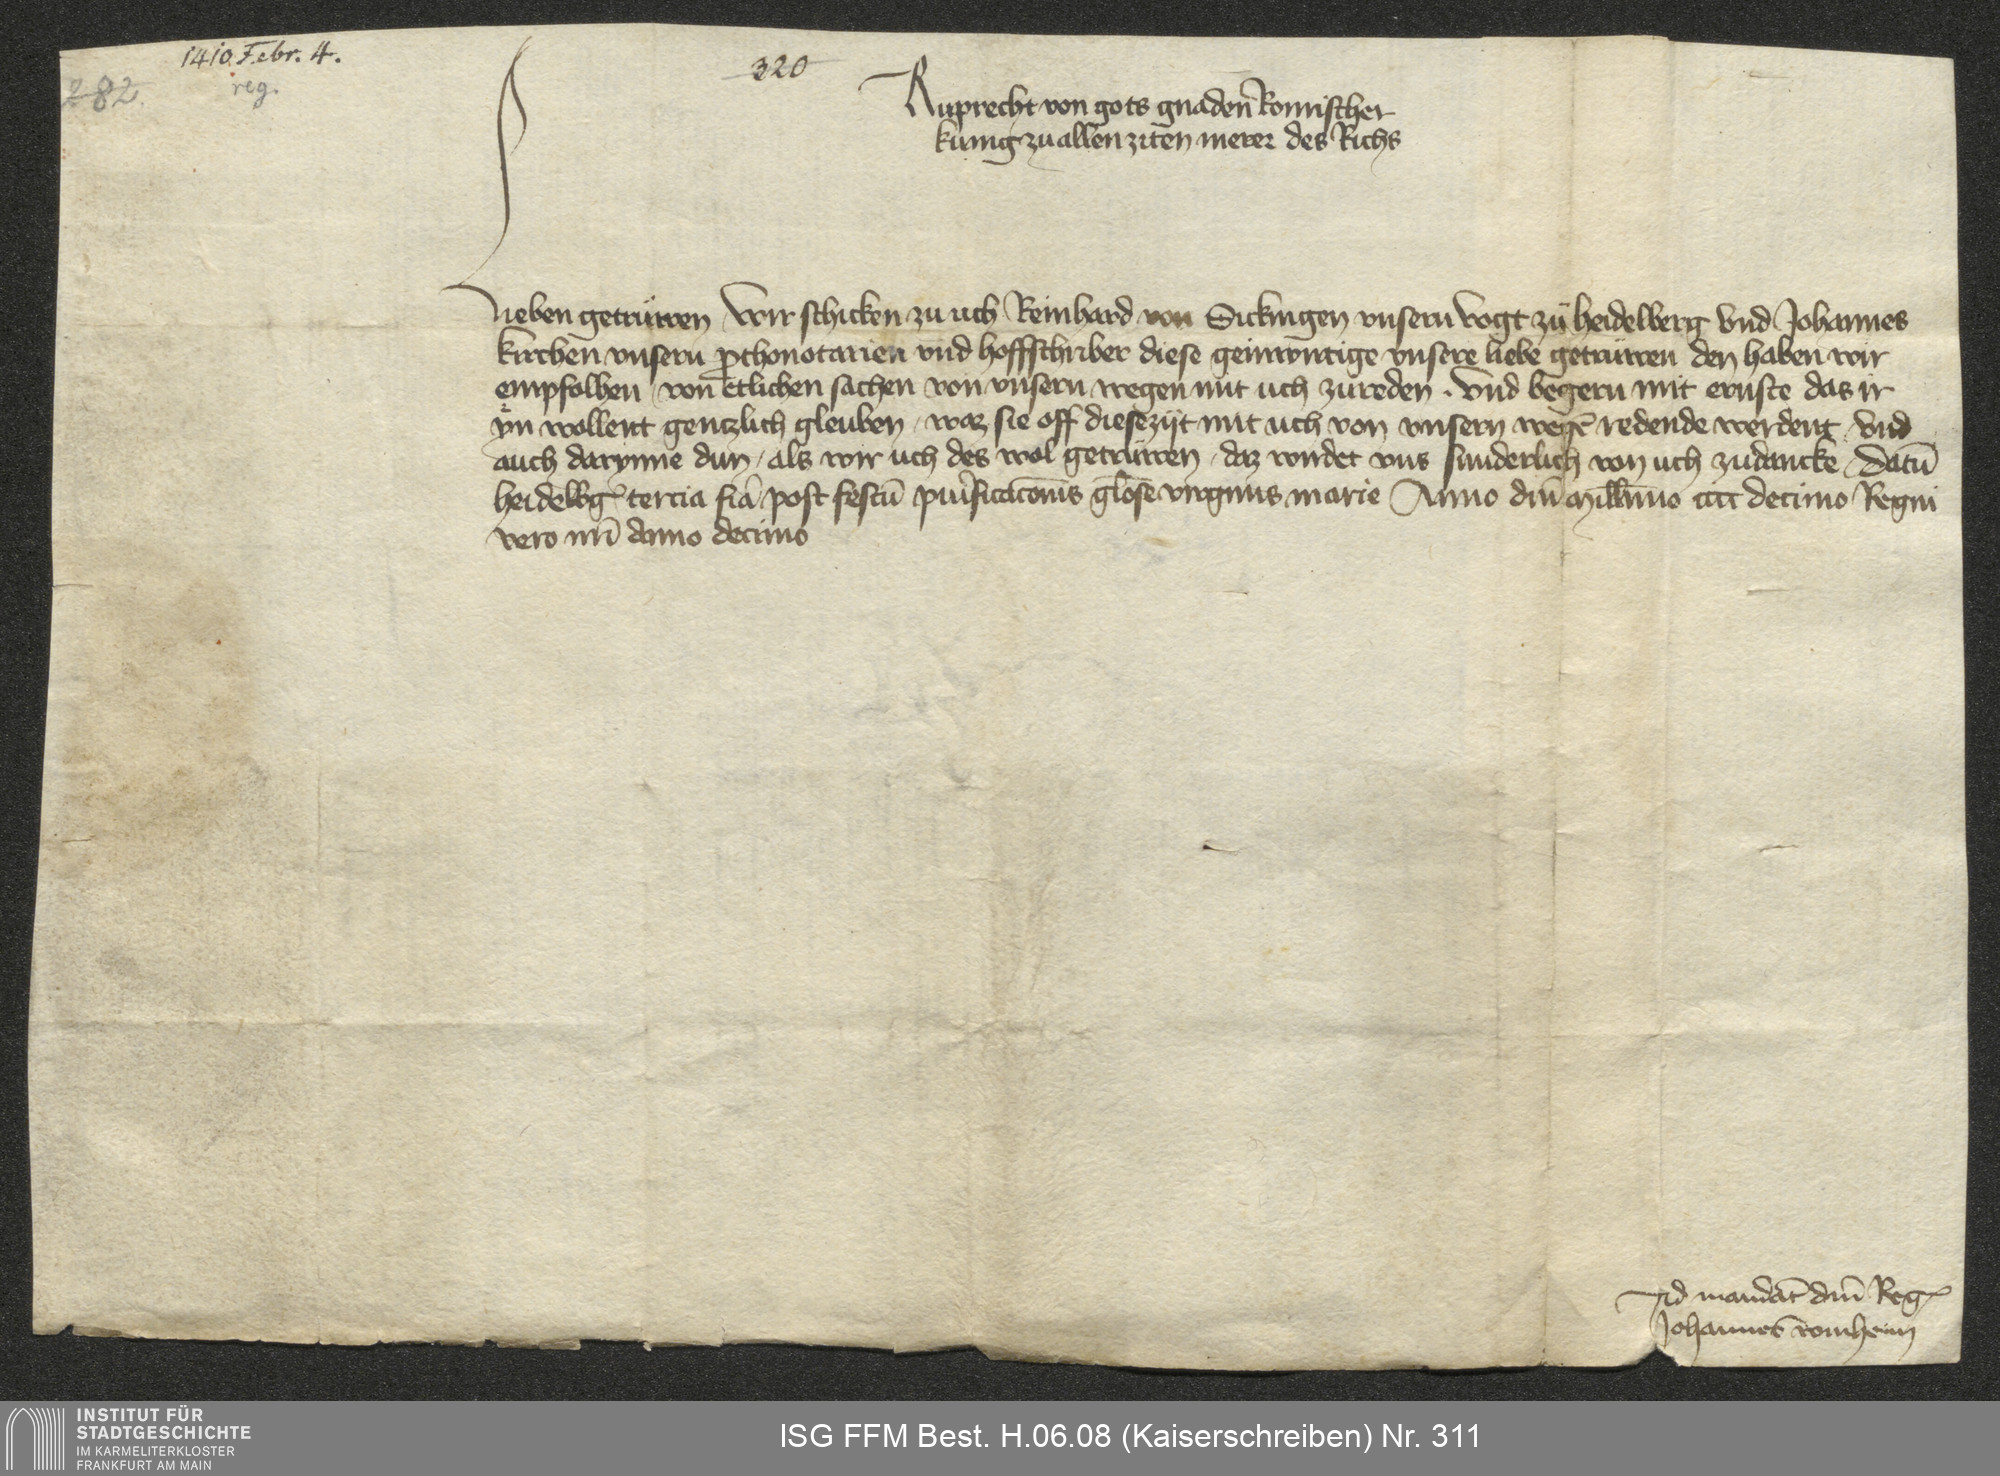 1410 Febr. 4.
reg.
282.
320
Ruprecht von gots gnaden Romischer
kunig zuallenziten merer des Richs
Lieben getruwen Wir schicken zu uch Reinhard von Sickingen vnsern vogt zu heidelberg vnd Johannes
kirchen vnsern prothonotarien vnd hoffschriber diese geinwurtige vnsere liebe getruwen den haben wir
empfolhen von etlichen sachen von vnsern wegen mit uch zureden . vnd begern mit ernste das ir
yn wollent gentzlich gleuben / waz sie off diesezijt mit uch von vnsern wegē redende werdent vnd
auch darynne dun / als wir uch des wol getruwen / daz wirdet vns sunderlich von uch zudancke / Datū
heidelbg tercia fia post festū purificacōnis glōse virginis marie Anno dnī Millmo cccc decimo Regni
vero nrī anno decimo
Ad mandat dnī Reg
Johannes
INSTITUT FÜR
STADTGESCHICHTE
IM KARMELITERKLOSTER
FRANKFURT AM MAIN
ISG FFM Best. H.06.08 (Kaiserschreiben) Nr. 311